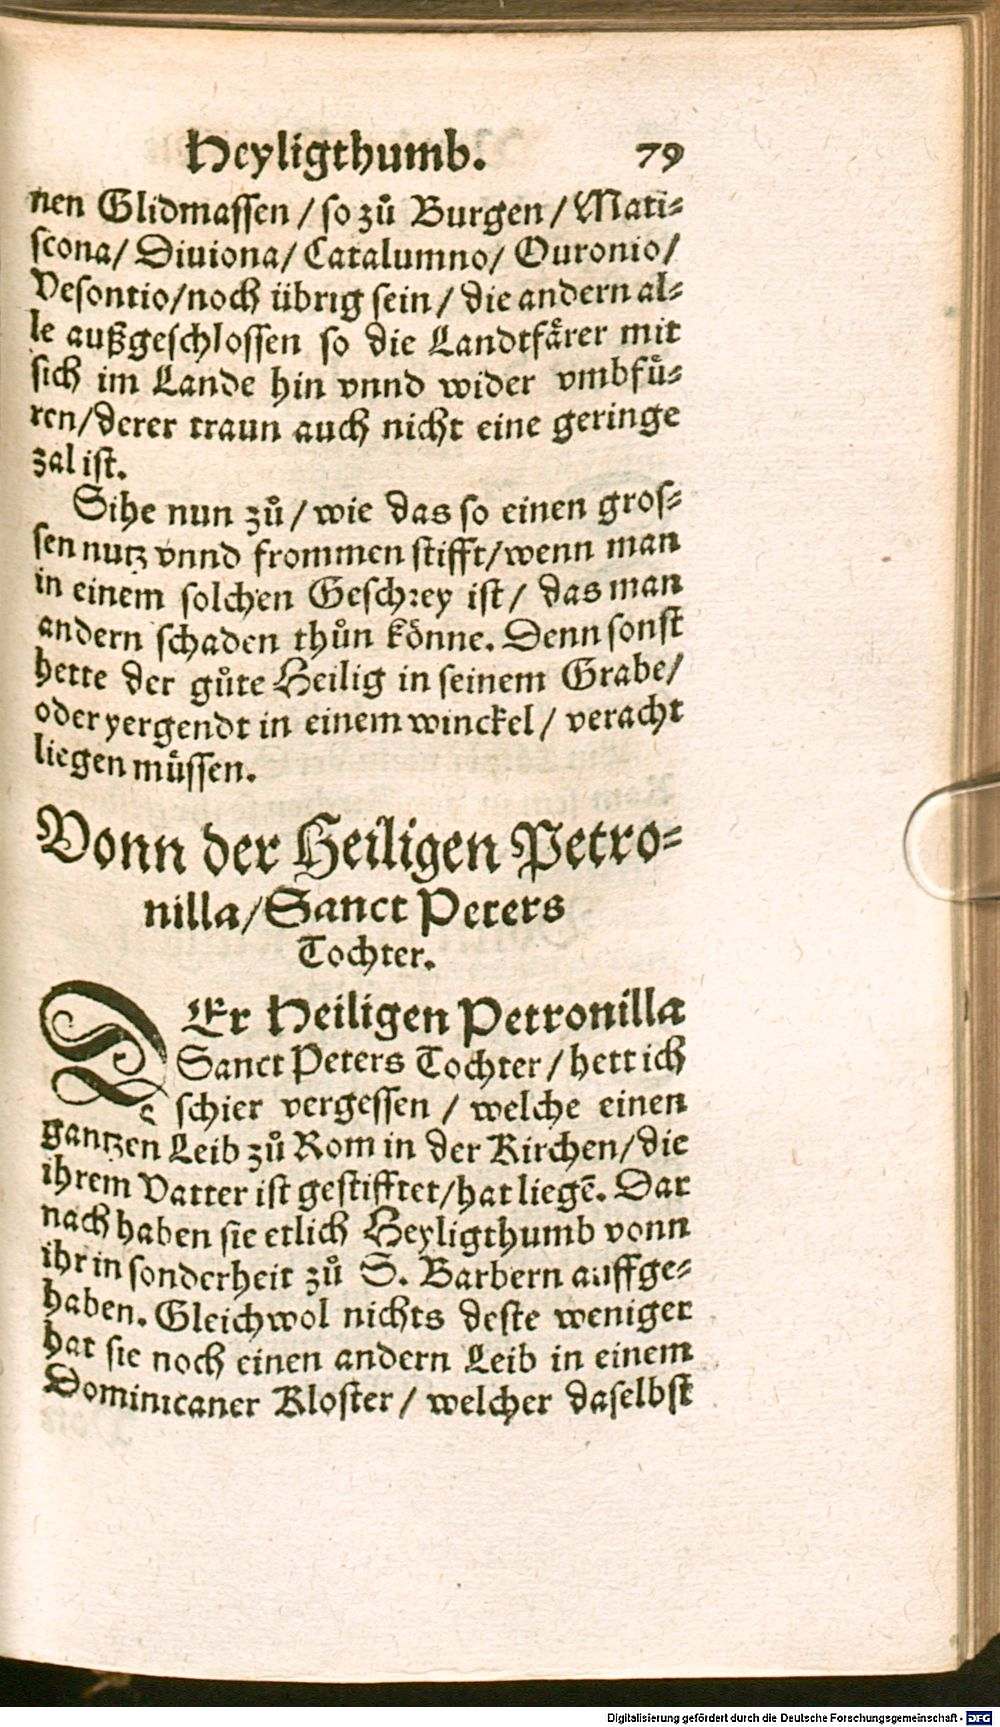 Heyligthumb. 79
nen Glidmassen / so zů Burgen / Mati⸗
scona / Diuiona / Catalumno / Ouronio /
Vesontio / noch übrig sein / die andern al⸗
le außgeschlossen so die Landtfårer mit
sich im Lande hin vnnd wider vmbfů⸗
ren / derer traun auch nicht eine geringe
zal ist.
Sihe nun zů / wie das so einen gros⸗
sen nutz vnnd frommen stifft / wenn man
in einem solchen Geschrey ist / das man
andern schaden thůn könne. Denn sonst
hette der gůte Heilig in seinem Grabe /
oder yergendt in einem winckel / veracht
liegen müssen.
Vonn der Heiligen Petro⸗
nilla / Sanct Peters
Tochter.
DEr Heiligen Petronilla
Sanct Peters Tochter / hett ich
schier vergessen / welche einen
gantzen Leib zů Rom in der Kirchen / die
ihrem Vatter ist gestifftet / hat liegē. Dar
nach haben sie etlich Heyligthumb vonn
ihr in sonderheit zů S. Barbern auffge⸗
haben. Gleichwol nichts deste weniger
hat sie noch einen andern Leib in einem
Dominicaner Kloster / welcher daselbst
Digitalisierung gefördert durch die Deutsche Forschungsgemeinschaft - DFG